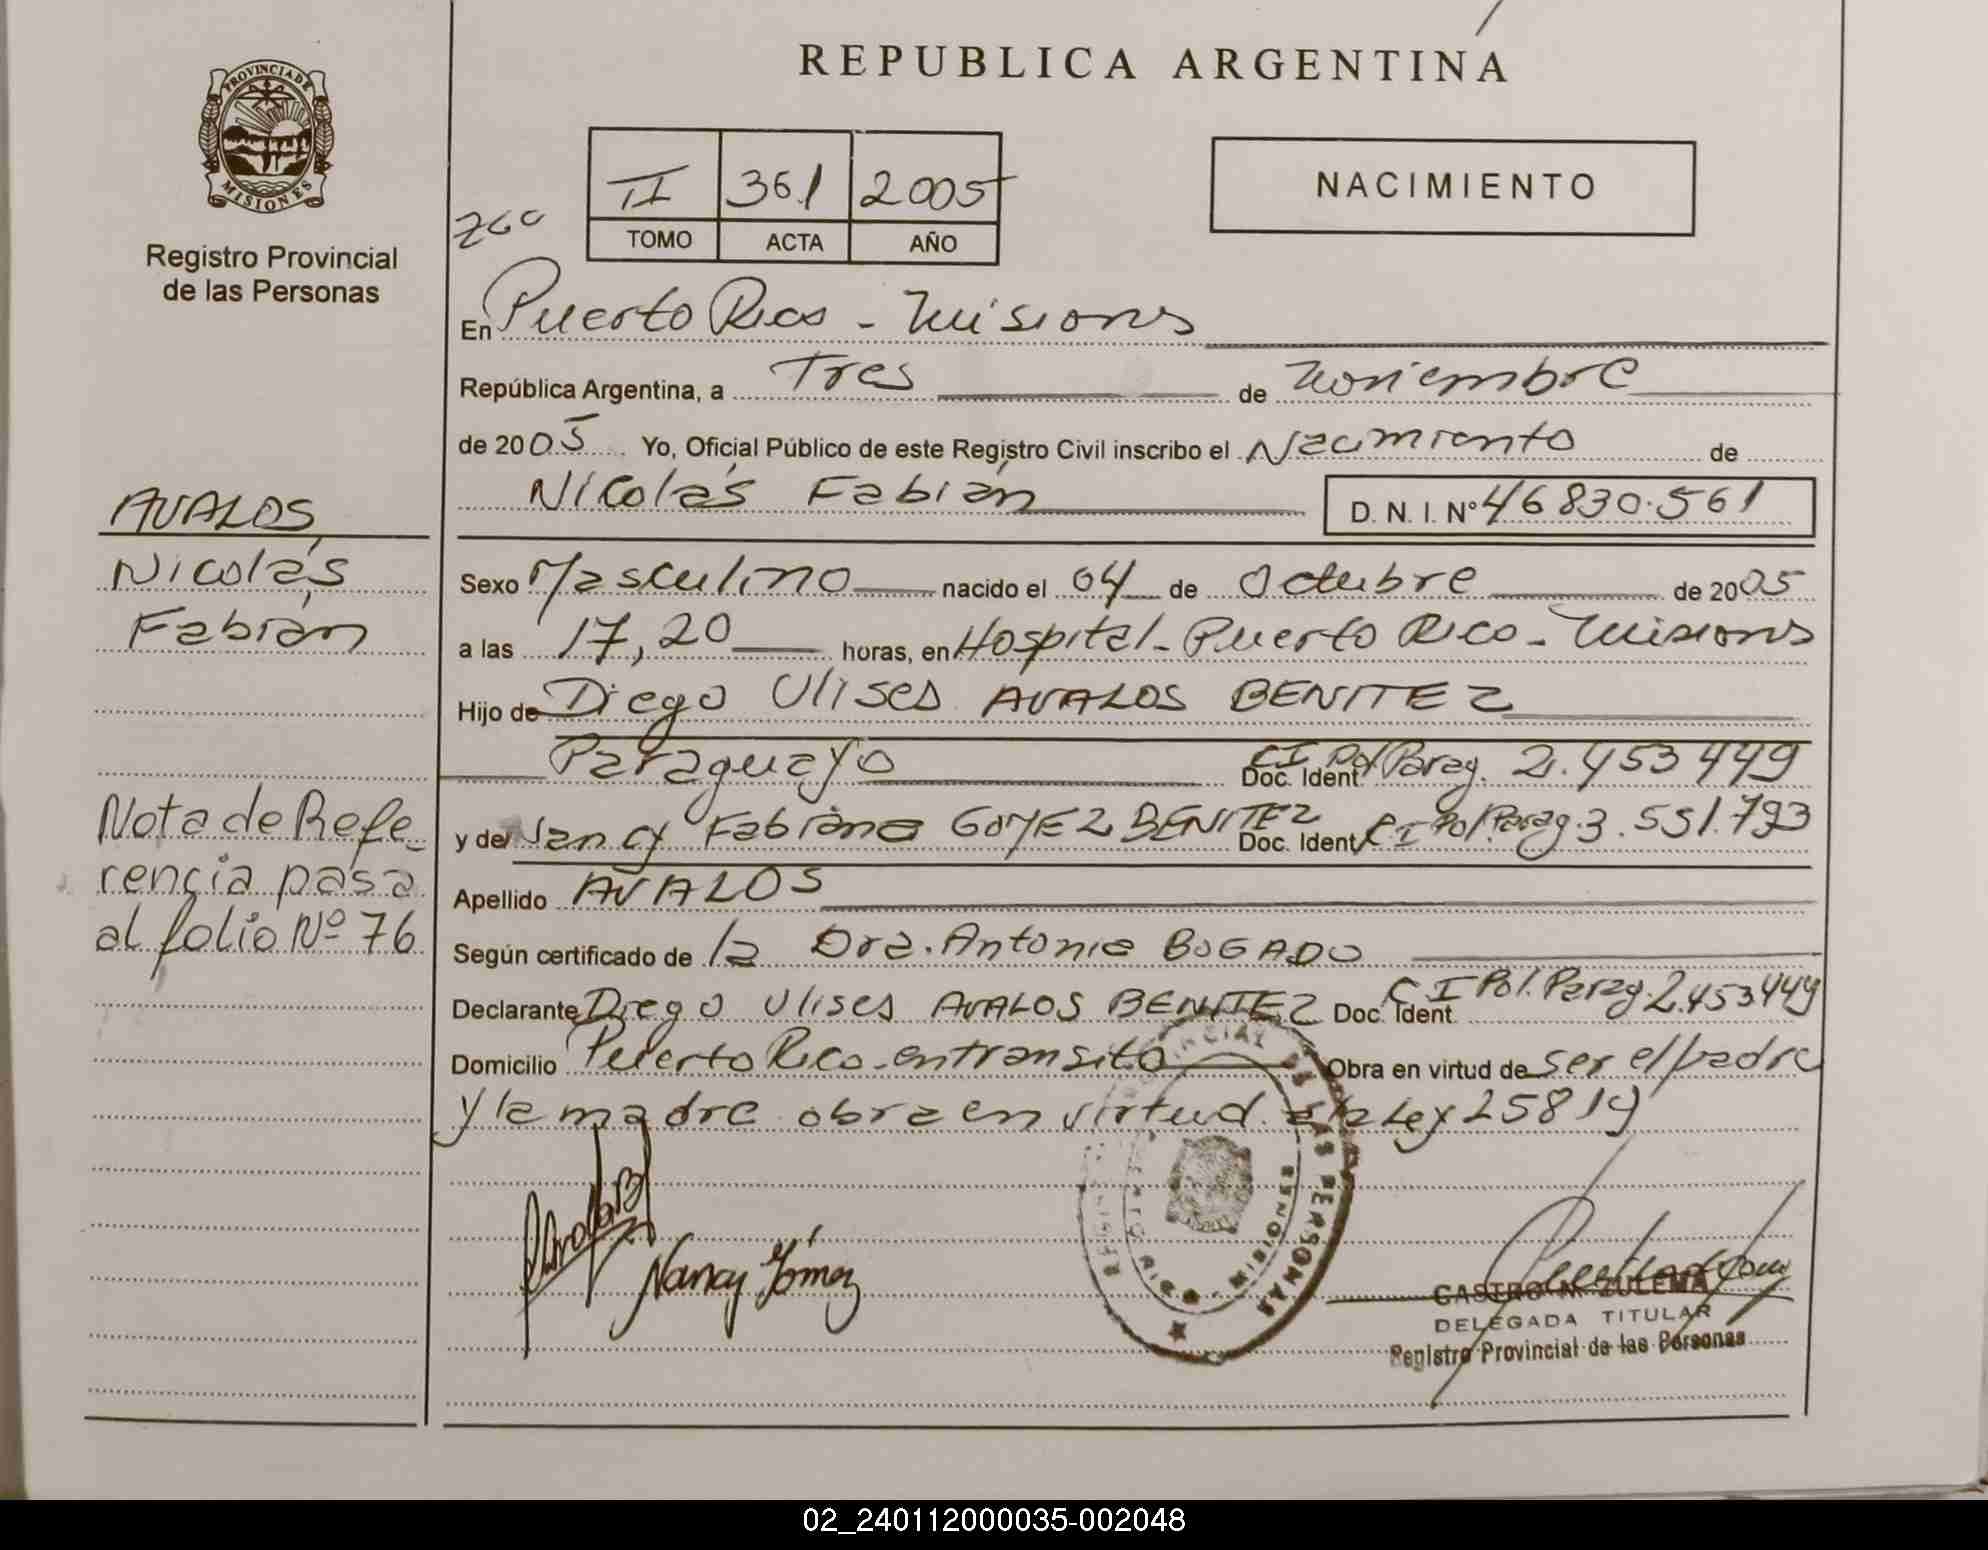 REPUBLICA ARGENTINA
PROVINCIA DE
MISIONES
Registro Provincial
de las Personas
II 361 2005
TOMO ACTA AÑO
NACIMIENTO
En Puerto Rico - Misiones
República Argentina, a Tres de Noviembre
de 2005 Yo, Oficial Público de este Registro Civil inscribo el Nacimiento de
Nicolás Fabián D. N. I. Nº 46830.561
AVALOS
Nicolás
Fabián
Sexo Masculino nacido el 04 de Octubre de 2005
a las 17,20 horas, en Hospital - Puerto Rico - Misiones
Hijo de Diego Ulises AVALOS BENITEZ
Paraguayo Doc. Ident CI Pol Parag. 2.453449
y de Nancy Fabiana GOMEZ BENITEZ Doc. Ident CI Pol. Parag. 3.551.793
Apellido AVALOS
Según certificado de la Dra. Antonia BOGADO
Declarante Diego Ulises AVALOS BENITEZ Doc. Ident CI Pol. Parag. 2.453449
Domicilio Puerto Rico - en transito Obra en virtud de ser el padre
y la madre obra en virtud a la Ley 25819
Nota de Refe-
rencia pasa
al folio Nº 76
Nancy Gómez
CASTRO N. ZULEMA
DELEGADA TITULAR
Registro Provincial de las Personas
02_240112000035-002048